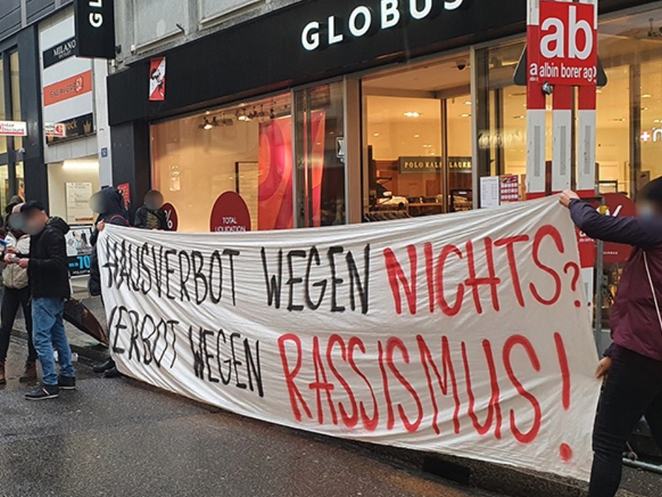 GLOBUS
ab
albin borer ag
MILANO
POLO RALPH LAUREN
%
TOTAL
LIQUIDATION
%
70
HAUSVERBOT WEGEN NICHTS?
VERBOT WEGEN RASSISMUS!